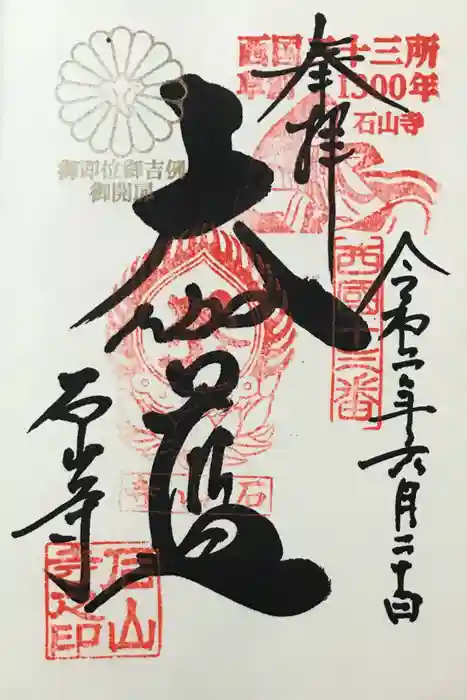 奉拝
西国三十三所
草創1300年
石山寺
御即位御吉例
御開扉
西國十三番
令和二年六月二十
大伽藍
石山寺
石山寺
石山
寺之印